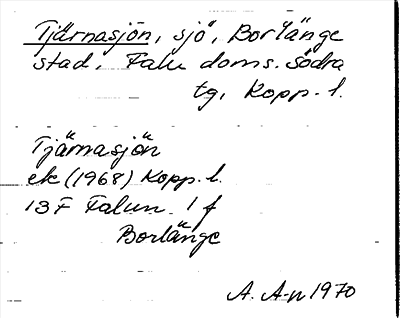 Tjärnasjön, sjö, Borlänge
stad. Falu doms. södra
tg, Kopp. l.
Tjärnasjön
ek (1968) Kopp. l.
13 F Falun 1 f
Borlänge
A. A-n 1970